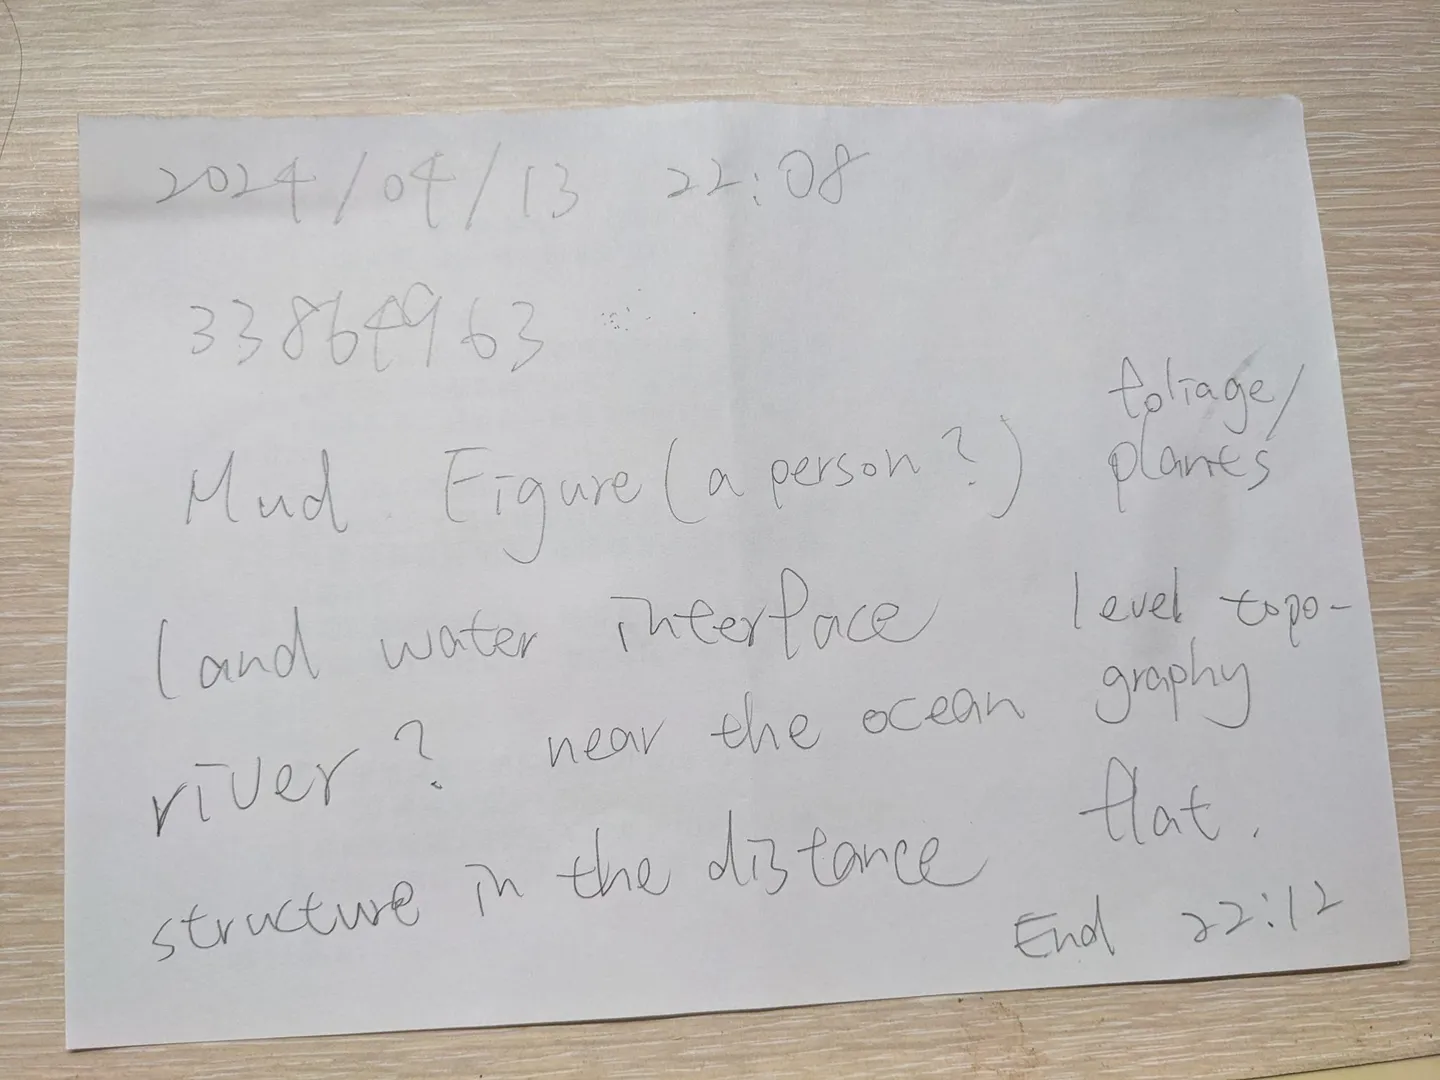 2024/04/13 22:08
33864963
Mud Figure (a person?)
land water interface
river? near the ocean
structure in the distance
foliage/
plants
level topo-
graphy
flat.
End 22:12